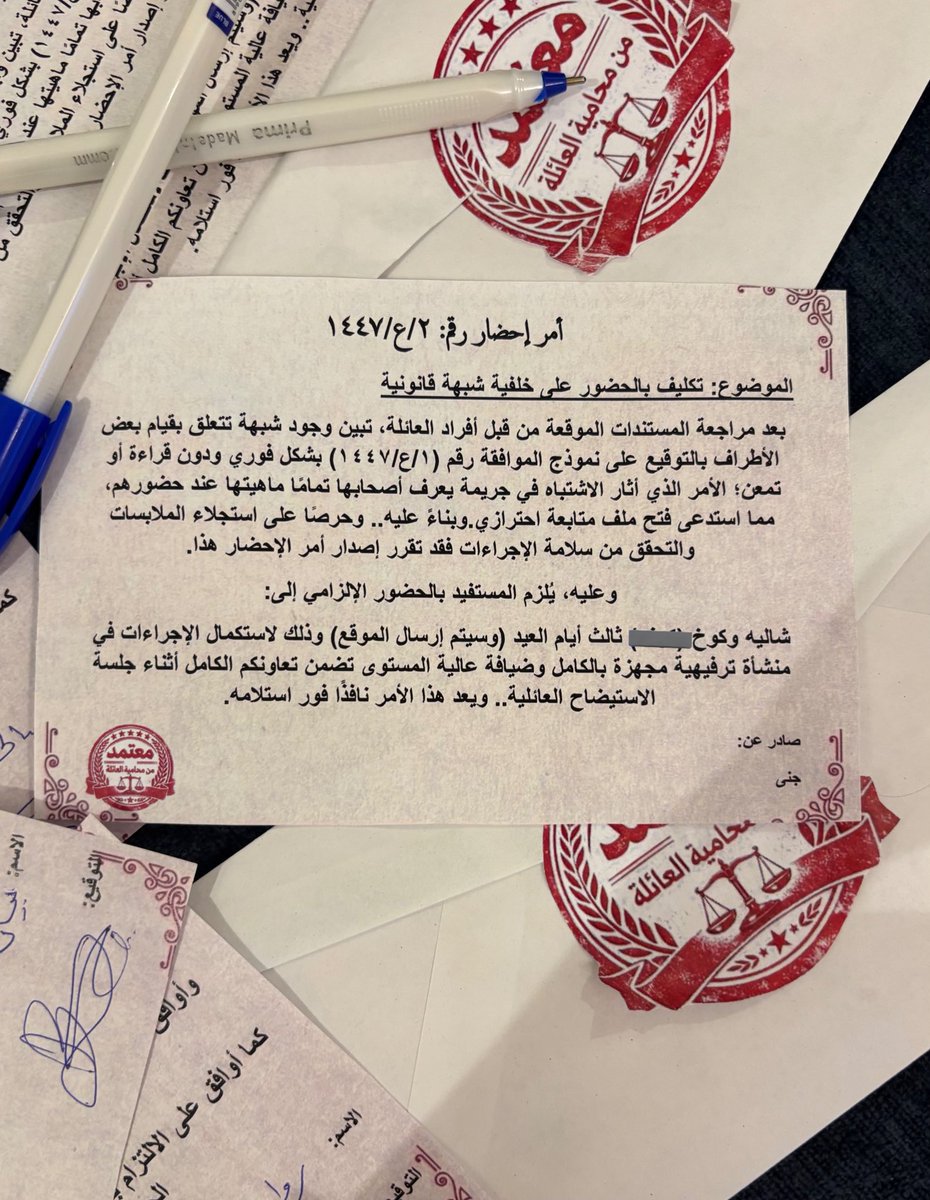 معتمد
من محامية العائلة
Prima
أمر إحضار رقم: ٢/ع/١٤٤٧
الموضوع: تكليف بالحضور على خلفية شبهة قانونية
بعد مراجعة المستندات الموقعة من قبل أفراد العائلة، تبين وجود شبهة تتعلق بقيام بعض
الأطراف بالتوقيع على نموذج الموافقة رقم (١/ع/١٤٤٧) بشكل فوري ودون قراءة أو
تمعن؛ الأمر الذي أثار الاشتباه في جريمة يعرف أصحابها تمامًا ماهيتها عند حضورهم،
مما استدعى فتح ملف متابعة احترازي.وبناءً عليه.. وحرصًا على استجلاء الملابسات
والتحقق من سلامة الإجراءات فقد تقرر إصدار أمر الإحضار هذا.
وعليه، يُلزم المستفيد بالحضور الإلزامي إلى:
شاليه وكوخ ( ) ثالث أيام العيد (وسيتم إرسال الموقع) وذلك لاستكمال الإجراءات في
منشأة ترفيهية مجهزة بالكامل وضيافة عالية المستوى تضمن تعاونكم الكامل أثناء جلسة
الاستيضاح العائلية.. ويعد هذا الأمر نافذًا فور استلامه.
صادر عن:
جنى
معتمد
من محامية العائلة
محامية العائلة
الاسم:
التوقيع:
وأوافق
كما أوافق على الالتزام
الاسم:
التوقيع